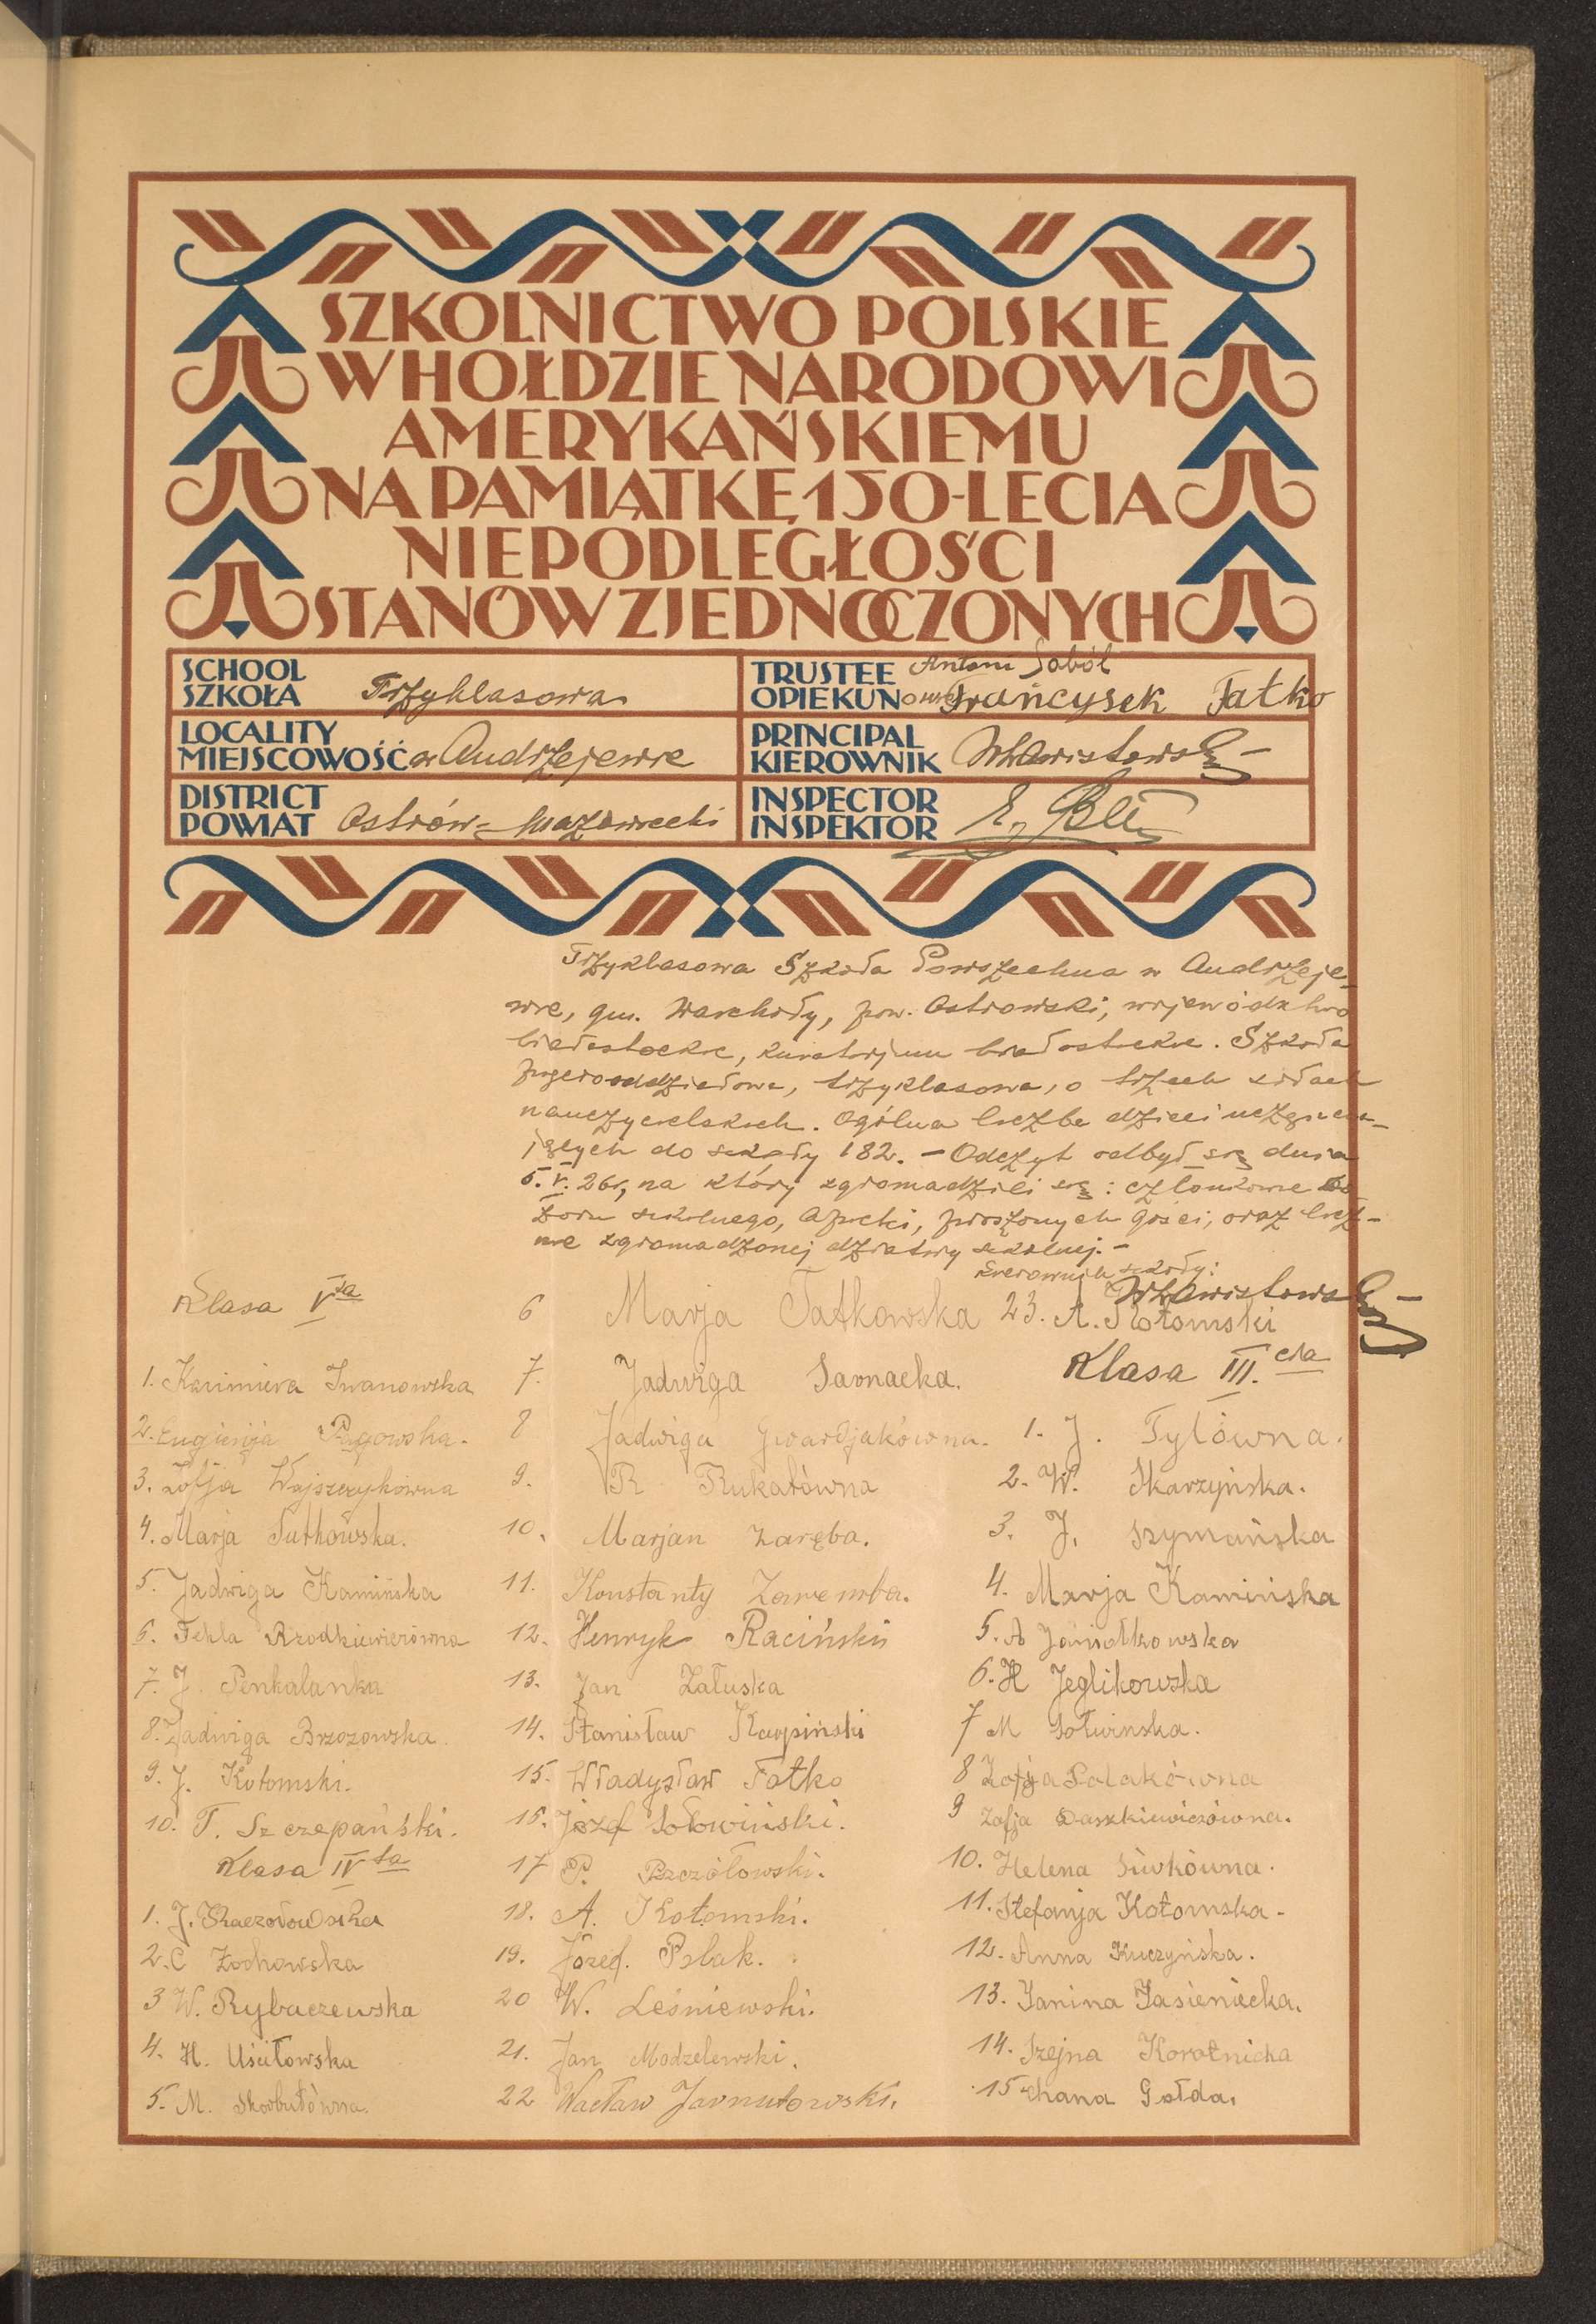 SZKOLNICTWO POLSKIE
W HOŁDZIE NARODOWI
AMERYKAŃSKIEMU
NA PAMIĄTKĘ 150-LECIA
NIEPODLEGŁOŚCI
STANÓW ZJEDNOCZONYCH
SCHOOL
SZKOŁA Trzyklasowa
TRUSTEE Antoni Soból
OPIEKUNowie Frańcysek Fatko
LOCALITY
MIEJSCOWOŚĆ w Andrzejewie
PRINCIPAL
KIEROWNIK
DISTRICT
POWIAT Ostrów-Mazowiecki
INSPECTOR
INSPEKTOR
Trzyklasowa Szkoła Powszechna w Andrzeje-
wie, gm. Warchoły, pow. Ostrowski, województwo
białostockie, kuratorjum białostockie. Szkoła
pięciooddziałowa, trzyklasowa, o trzech siłach
nauczycielskich. Ogólna liczba dzieci uczęszcza-
jących do szkoły 182. – Odczyt odbył się dnia
5.V.26r, na który zgromadzili się: członkowie Do-
zoru szkolnego, Opieki, proszonych gości, oraz licz-
nie zgromadzonej dziatwy szkolnej. –
Kierownik szkoły:
Klasa Vta
1. Kazimiera Iwanowska
2. Eugienja Pągowska.
3. Zofja Wojszczykówna
4. Marja Sutkowska.
5. Jadwiga Kamińska
6. Tekla Rzodkiewiczówna
7. J. Penkalanka
8. Jadwiga Brzozowska.
9. J. Kołomski.
10. T. Szczepański.
Klasa IVta
1. J.
2. C Żochowska
3 W. Rybaczewska
4. H. Uściłowska
5. M. Skorbutówna.
6 Marja Fatkowska
7. Jadwiga Sarnacka.
8 Jadwiga Gwardjakówna.
9. R Rukatówna
10. Marjan Zaręba.
11. Konstanty Zaremba.
12. Henryk Raciński
13. Jan Załuska
14. Stanisław Karpiński
15. Władysław Fatko
16. Józef Sołowiński.
17 P. Pszczółowski.
18. A. Kołomski.
19. Józef. Polak.
20 W. Leśniewski.
21. Jan Modzelewski.
22 Wacław Jarnutowski.
23. A. Kołomski
Klasa III.cia
1. J. Tylówna.
2. W. Skarzyńska.
3. J. Szymańska
4. Marja Kamińska
5. A
6. H Jeglikowska
7 M Sołwinska.
8 Zofja Polakówna
9 Zofja Daszkiewiczówna.
10. Helena Siwkówna.
11. Stefanja Kołomska.
12. Anna Kuczyńska.
13. Janina Jasieniecka.
14. Szejna Korotnicka
15 Chana Gołda.